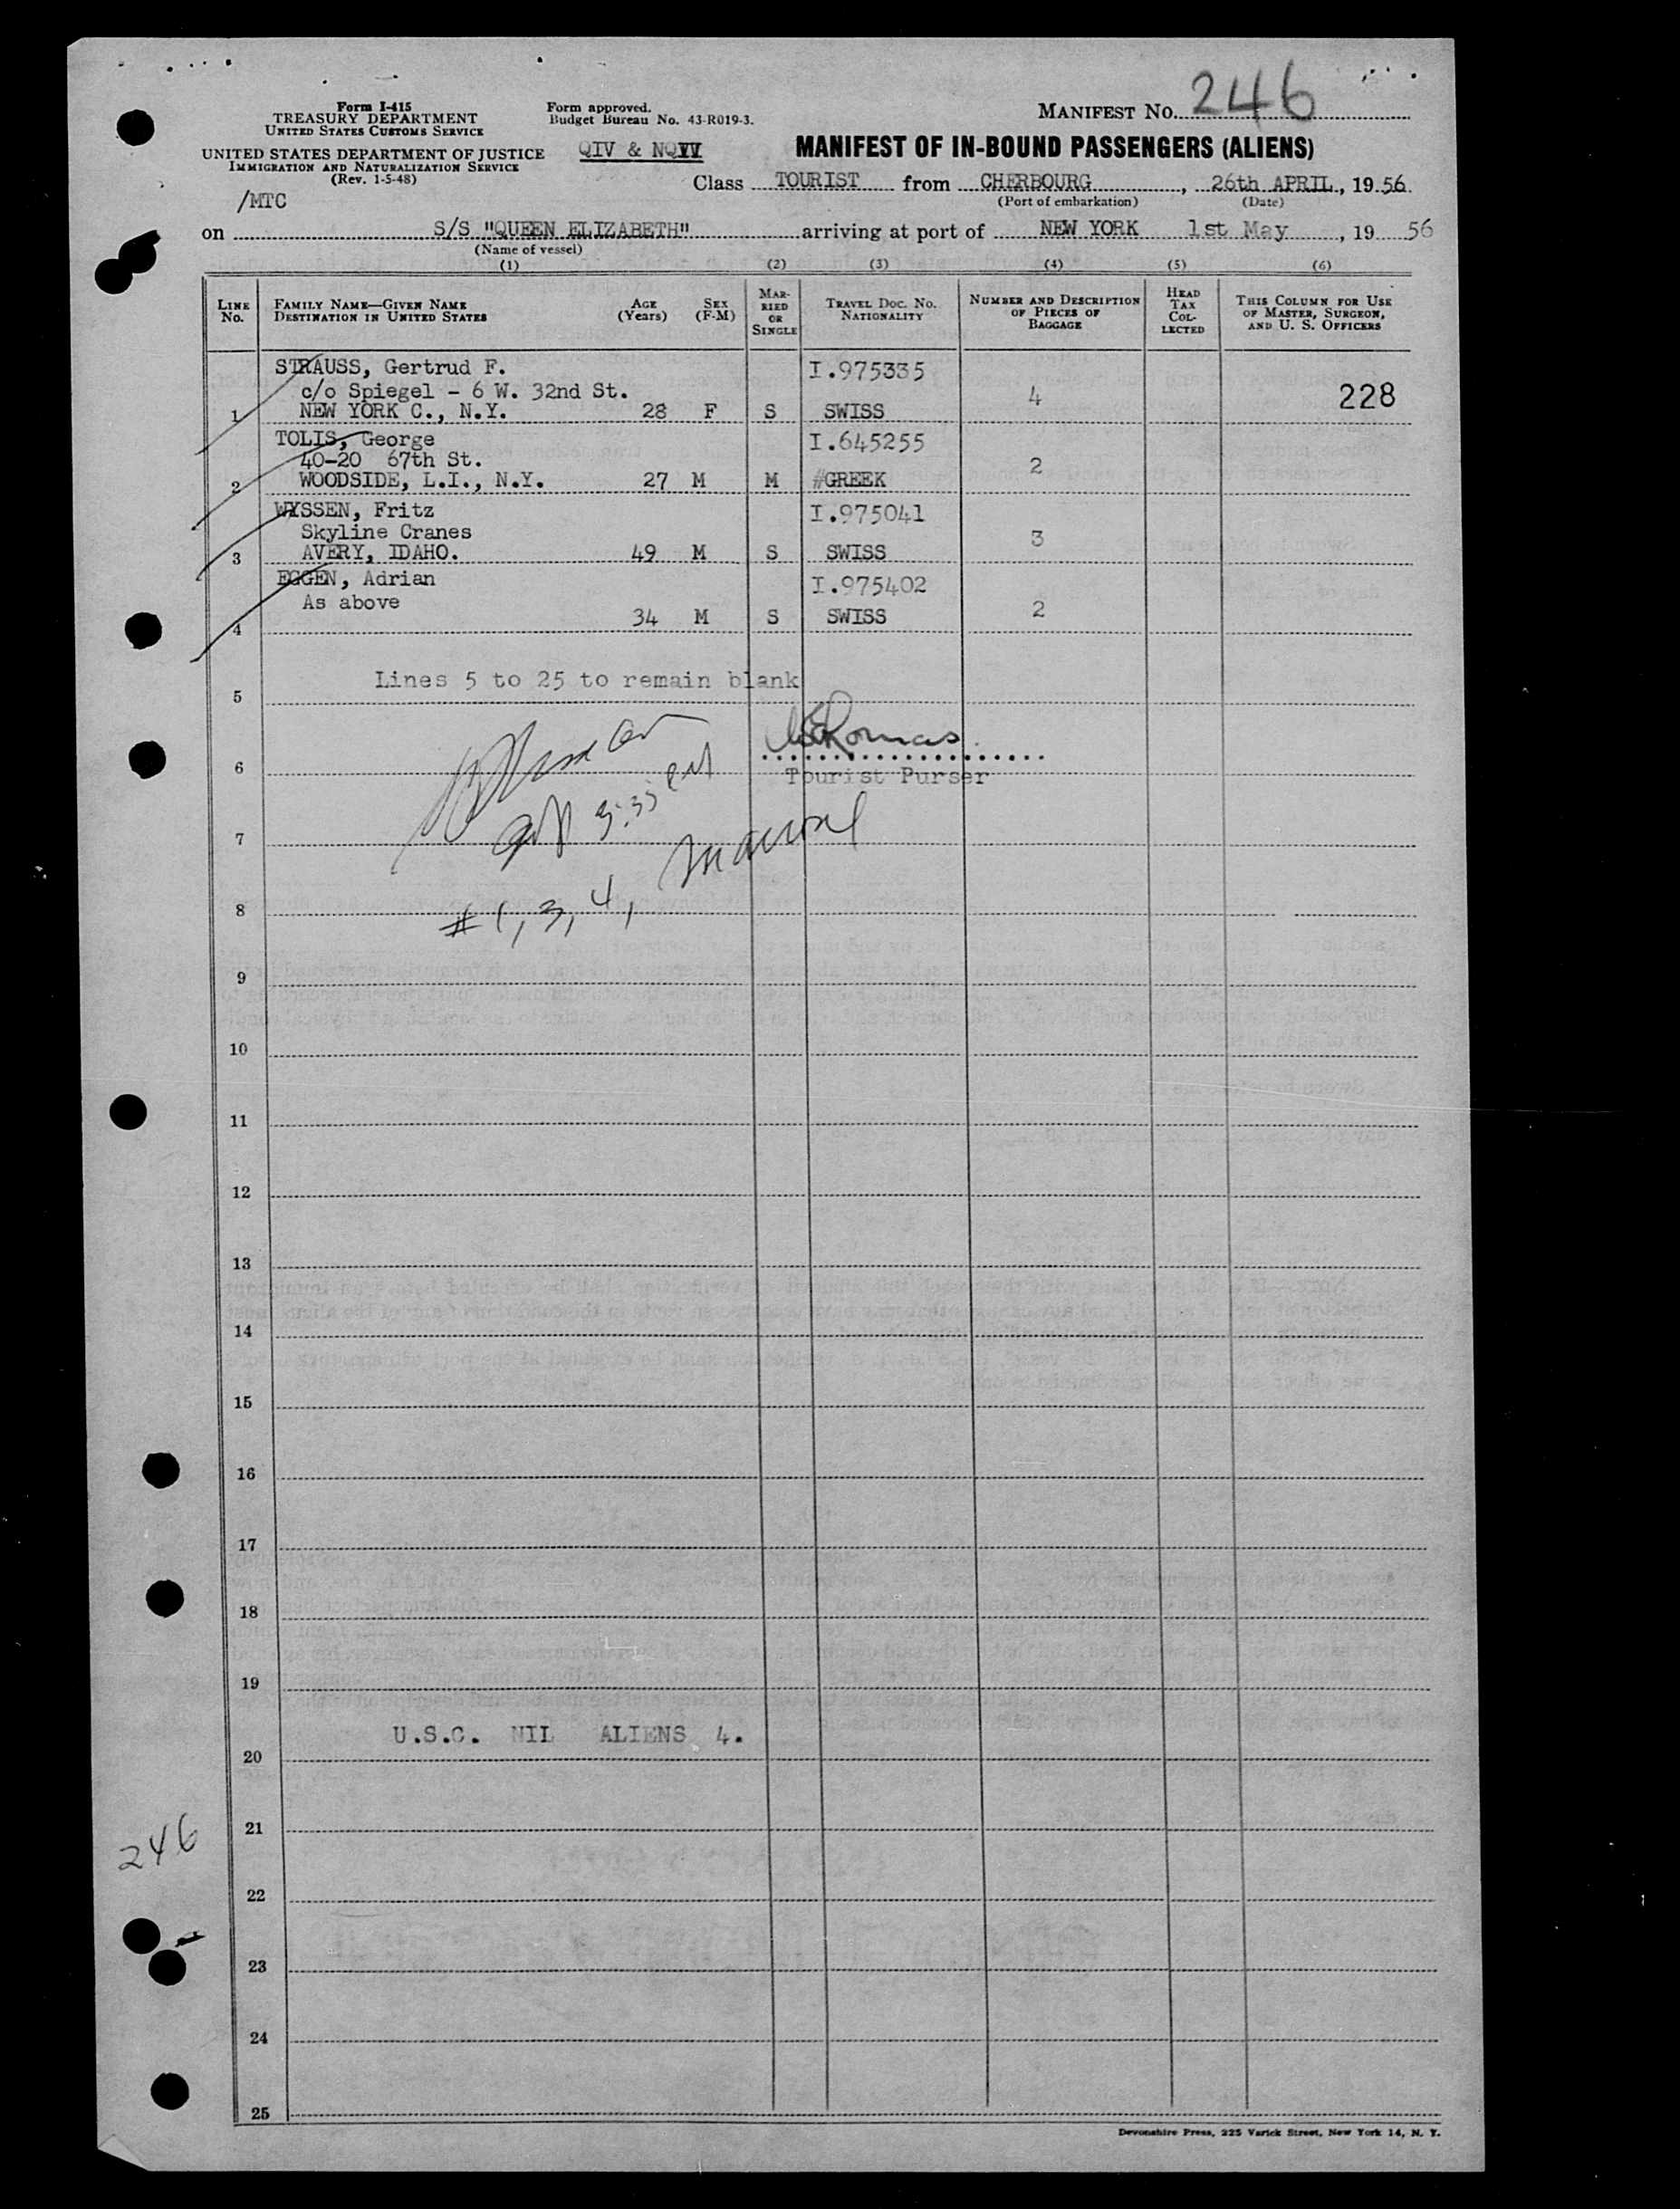 Form I-415
TREASURY DEPARTMENT
UNITED STATES CUSTOMS SERVICE
UNITED STATES DEPARTMENT OF JUSTICE
IMMIGRATION AND NATURALIZATION SERVICE
(Rev. 1-5-48)
/MTC
Form approved.
Budget Bureau No. 43-R019-3.
QIV & NQIV
MANIFEST No. 246
MANIFEST OF IN-BOUND PASSENGERS (ALIENS)
Class TOURIST from CHERBOURG, 26th APRIL, 1956.
(Port of embarkation) (Date)
on S/S "QUEEN ELIZABETH" arriving at port of NEW YORK 1st May, 19 56
(Name of vessel)
(1) (2) (3) (4) (5) (6)
LINE No. FAMILY NAME—GIVEN NAME DESTINATION IN UNITED STATES AGE (Years) SEX (F-M) MARRIED OR SINGLE TRAVEL DOC. NO. NATIONALITY NUMBER AND DESCRIPTION OF PIECES OF BAGGAGE HEAD TAX COLLECTED THIS COLUMN FOR USE OF MASTER, SURGEON, AND U. S. OFFICERS
STRAUSS, Gertrud F. I.975335
c/o Spiegel - 6 W. 32nd St. 4 228
1 NEW YORK C., N.Y. 28 F S SWISS
TOLIS, George I.645255
40-20 67th St. 2
2 WOODSIDE, L.I., N.Y. 27 M M #GREEK
WYSSEN, Fritz I.975041
Skyline Cranes 3
3 AVERY, IDAHO. 49 M S SWISS
EGGEN, Adrian I.975402
As above 2
4 34 M S SWISS
Lines 5 to 25 to remain blank
5
6 Tourist Purser
7
# 1, 3, 4,
8
9
10
11
12
13
14
15
16
17
18
19
U.S.C. NIL ALIENS 4.
20
21
246
22
23
24
25
Devonshire Press, 225 Varick Street, New York 14, N. Y.